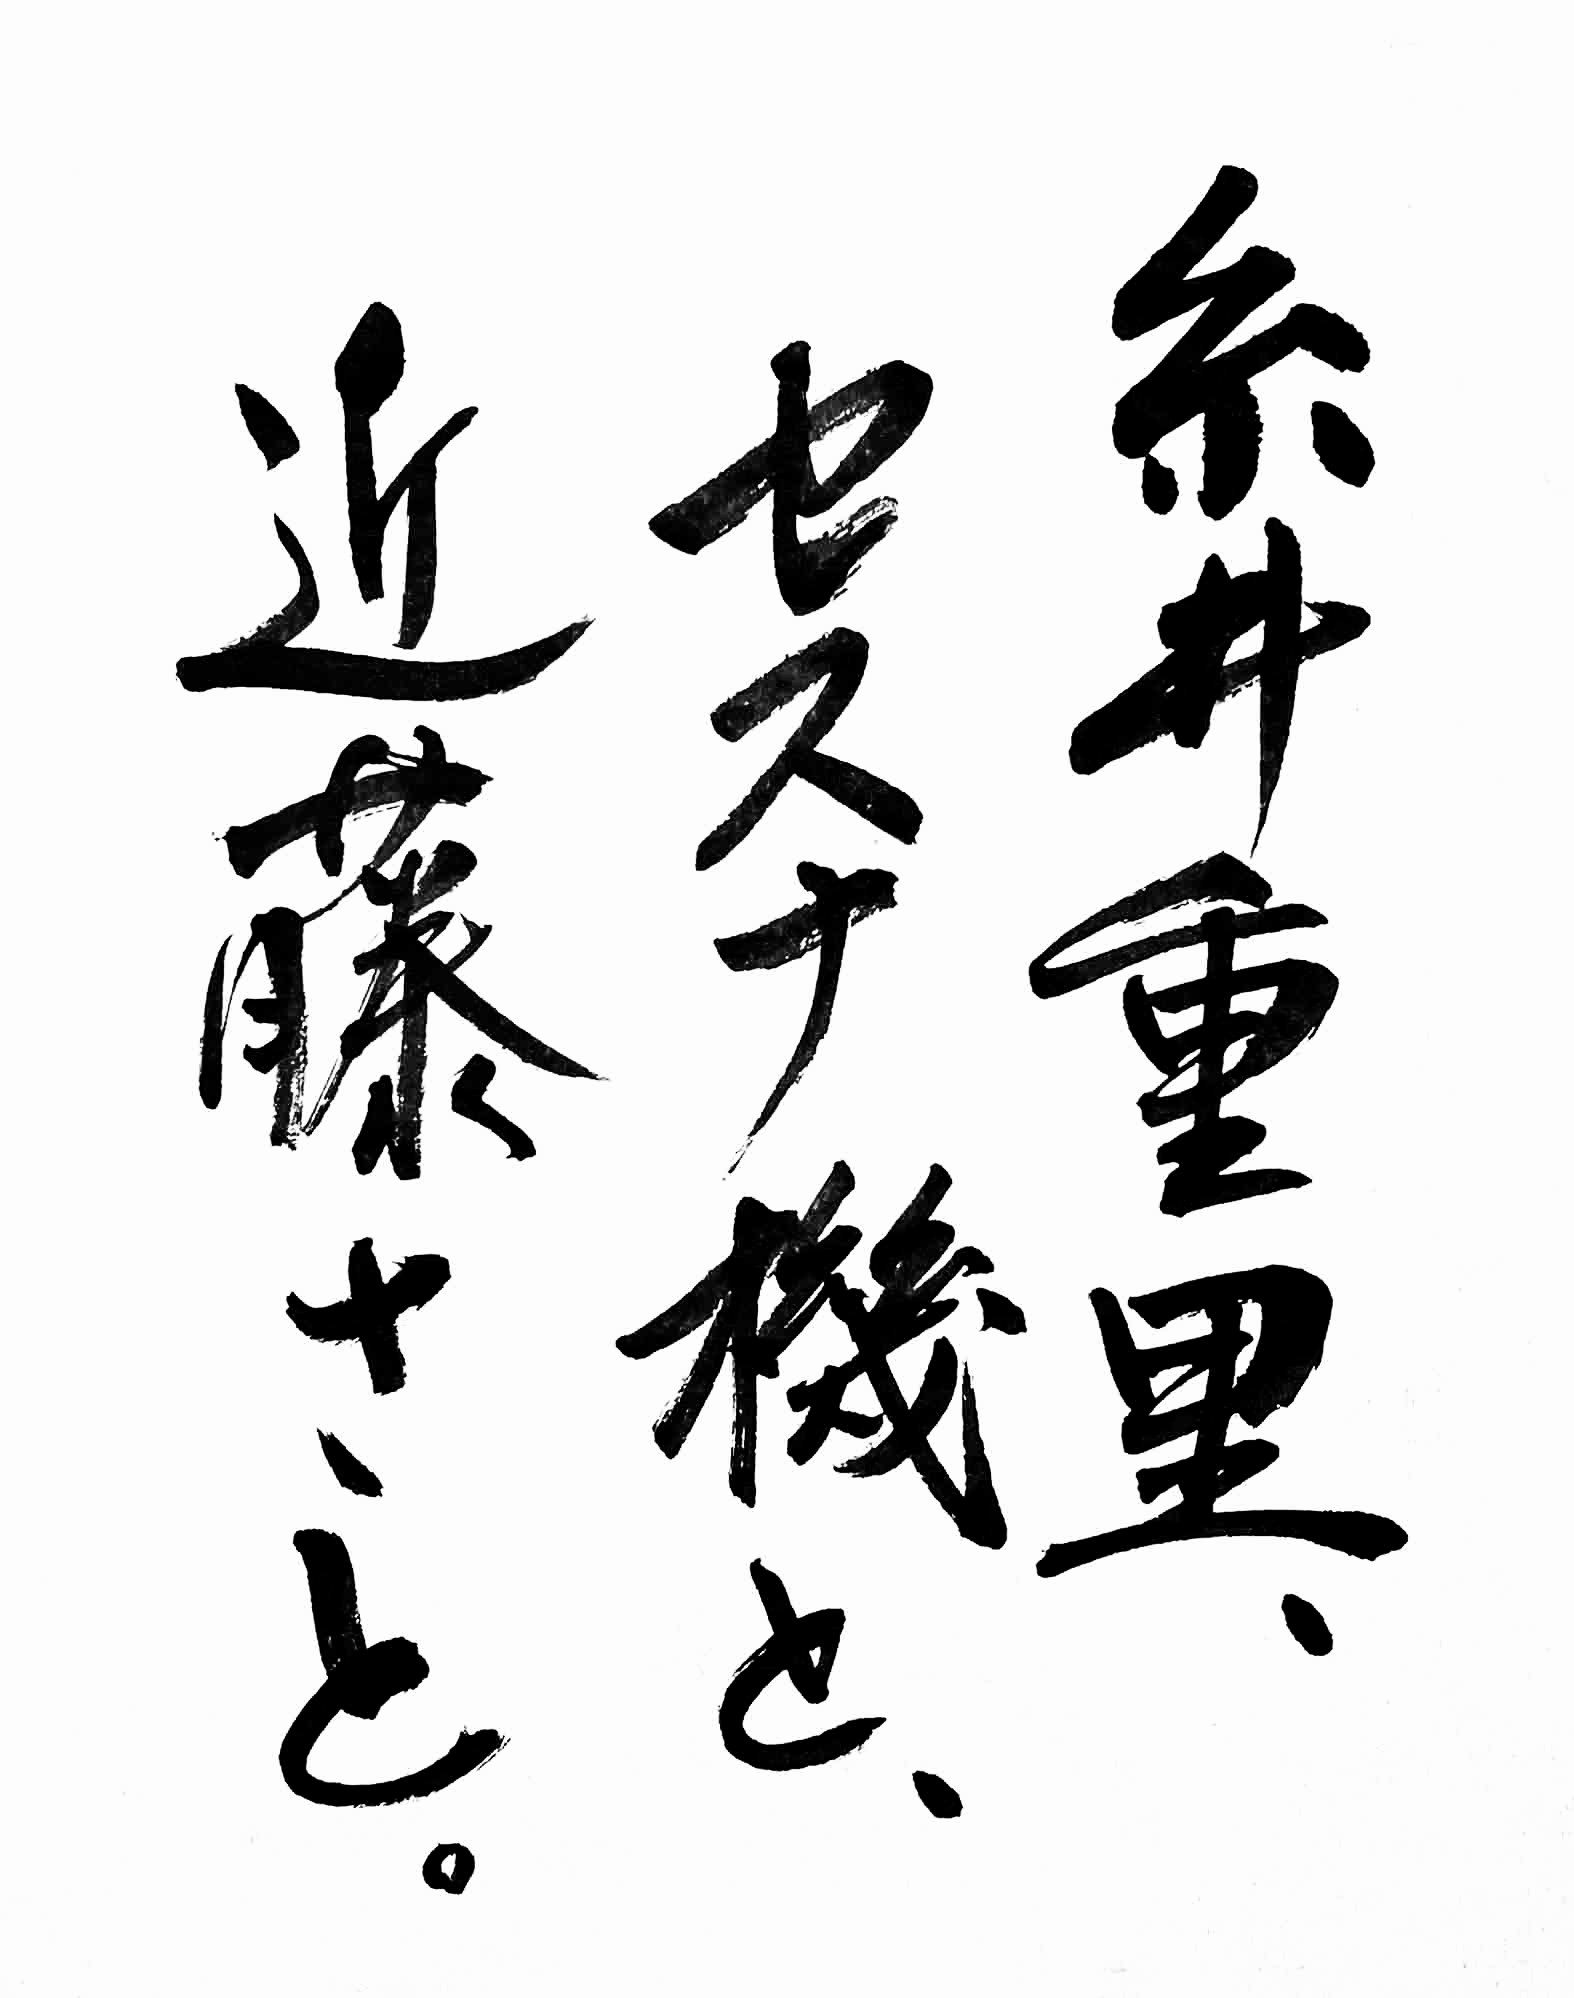 糸井重里、
セスナ機と、
近藤さと。